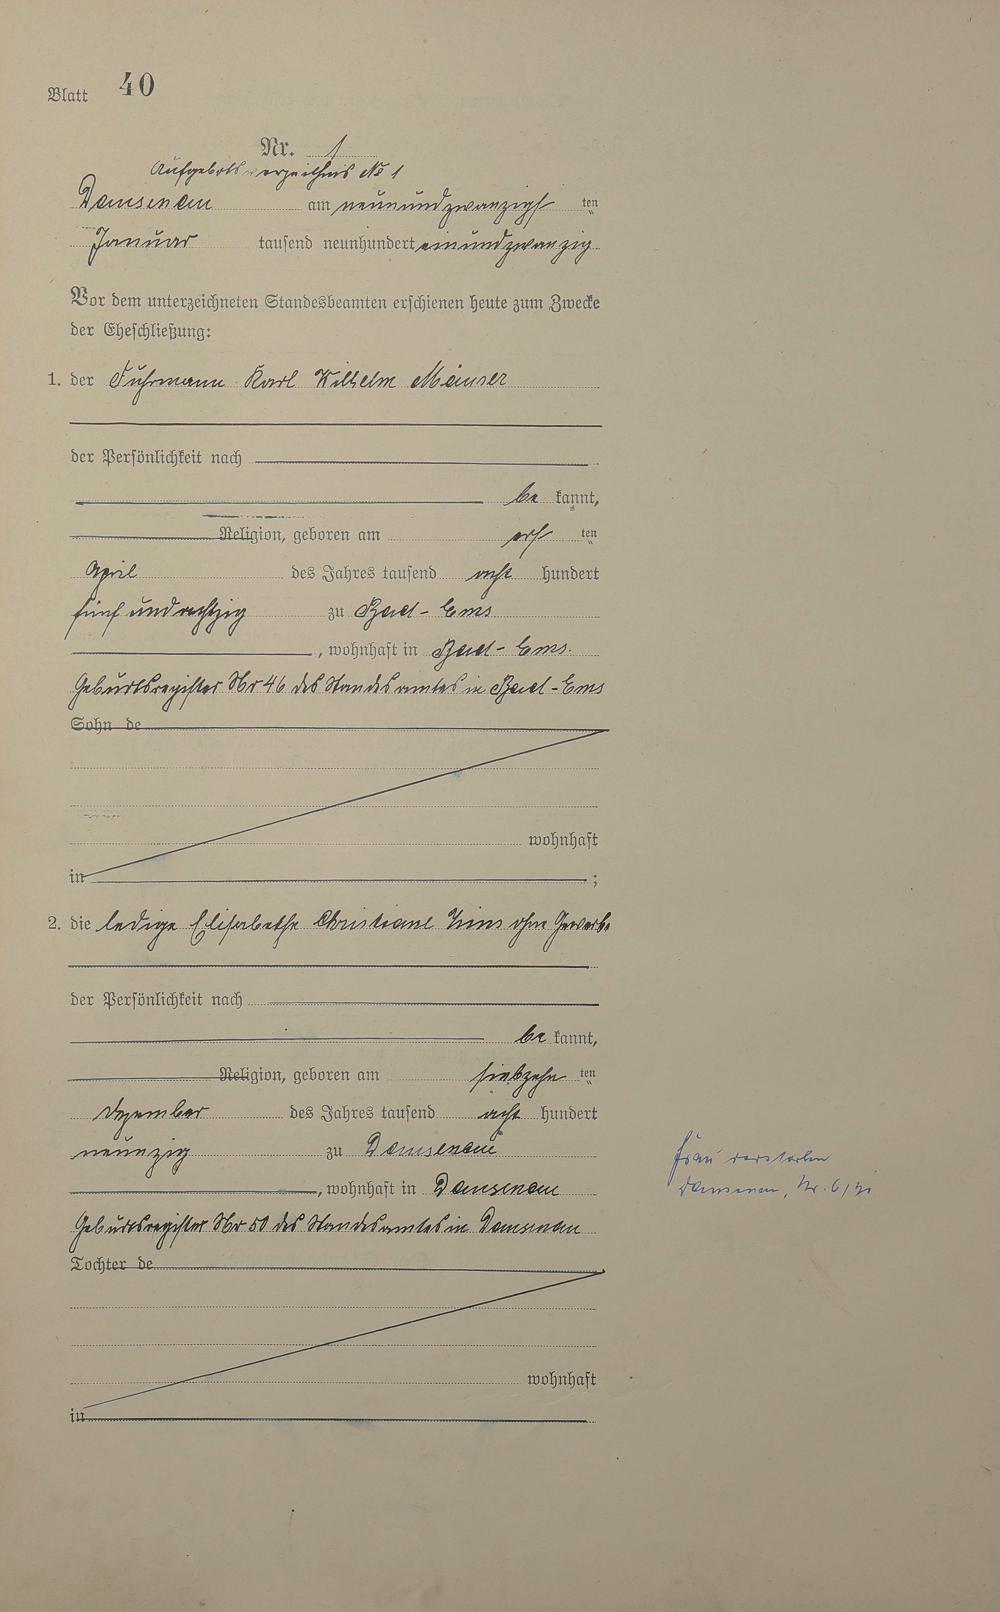 Blatt 40
Nr. 1
Aufgebotsverzeichnis No 1
Dausenau am neunundzwanzigs ten
Januar tausend neunhundert einundzwanzig
Vor dem unterzeichneten Standesbeamten erschienen heute zum Zwecke
der Eheschließung:
1. der Fuhrmann Karl Wilhelm Mäurer
der Persönlichkeit nach
be kannt,
Religion, geboren am ers ten
April des Jahres tausend acht hundert
fünfundachtzig zu Bad-Ems
, wohnhaft in Bad-Ems.
Geburtsregister Nr 46 des Standesamtes in Bad-Ems
Sohn de
wohnhaft
in ;
2. die ledige Elisabethe Christiane ohne Gewerbe
der Persönlichkeit nach
be kannt,
Religion, geboren am siebzehn ten
Dezember des Jahres tausend acht hundert
neunzig zu Dausenau
, wohnhaft in Dausenau
Geburtsregister Nr 50 des Standesamtes in Dausenau
Tochter de
wohnhaft
in
Frau verstorben
Dausenau, Nr. 6/